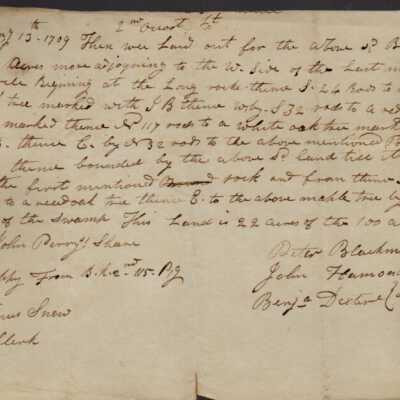 th
13 - 1709 Then wee Laid out for the above sd B
Acres more adjoyning to the W. Side of the Last m
Begining at the Long rocke thence S. 26 Rods to a
tree marked with S B thence wby. S 32 rods to a red
marked thence N. 117 rods to a white oak tree mark
B. thence E. by N 32 rods to the above mentioned
thence bounded by the above sd Land till it
the first mentioned rock and from thence
to a red oak tree thence E. to the above maple tree by
of the Swamp This Land is 22 acres of the 100 a
John Perrys Share
Peter Blackm
Copy From B.k 2nd 115. Pg
John Hamond
Benja Dexter
Snow
Clerk